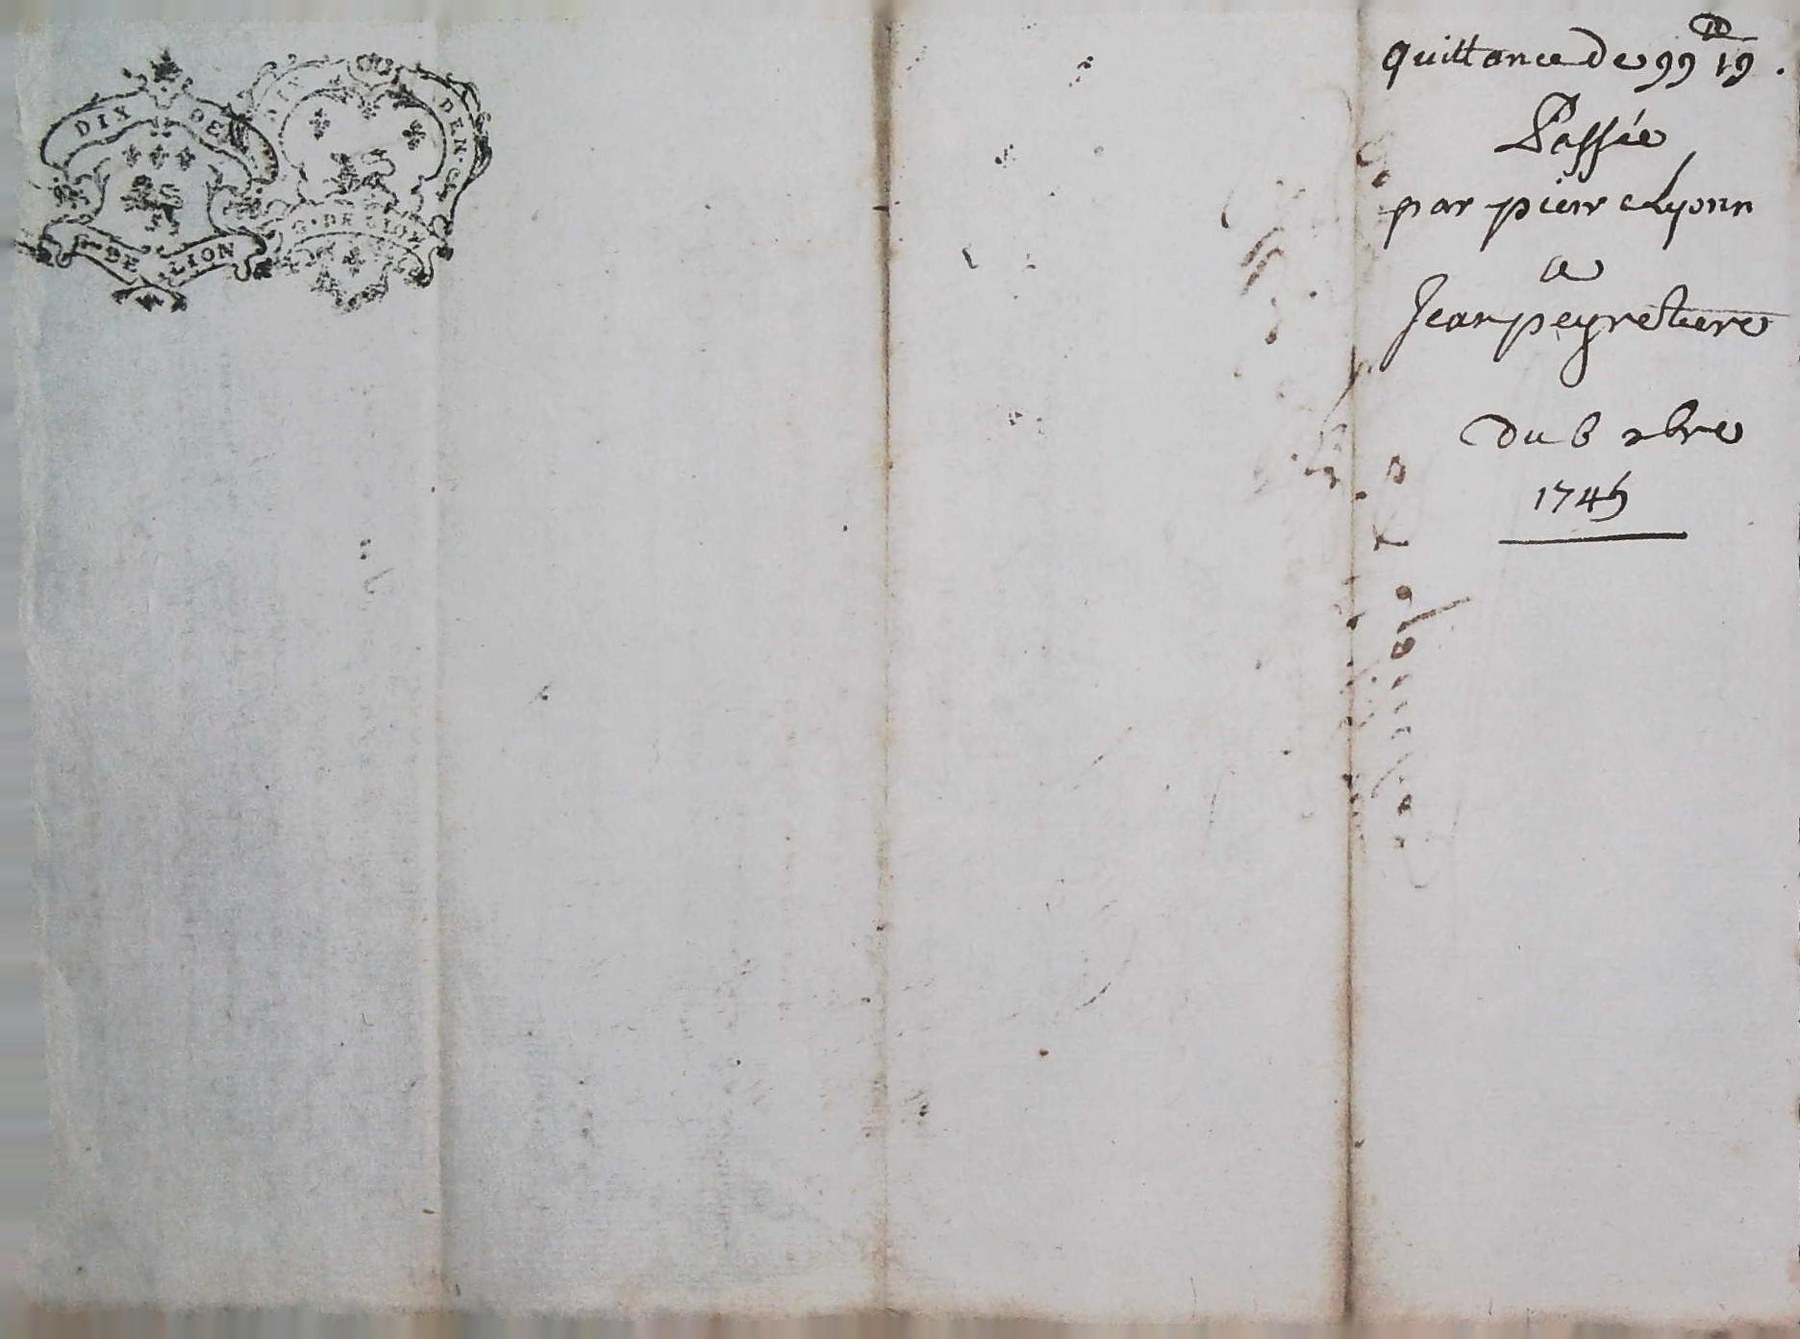 DIX DEN
G. DE LION
DIX DEN. G.
G. DE LION
quittance de 99 ₶ 19.
Passée
par pierre Lyonn
a
Jean peyretiere
du 6 xbre
1745